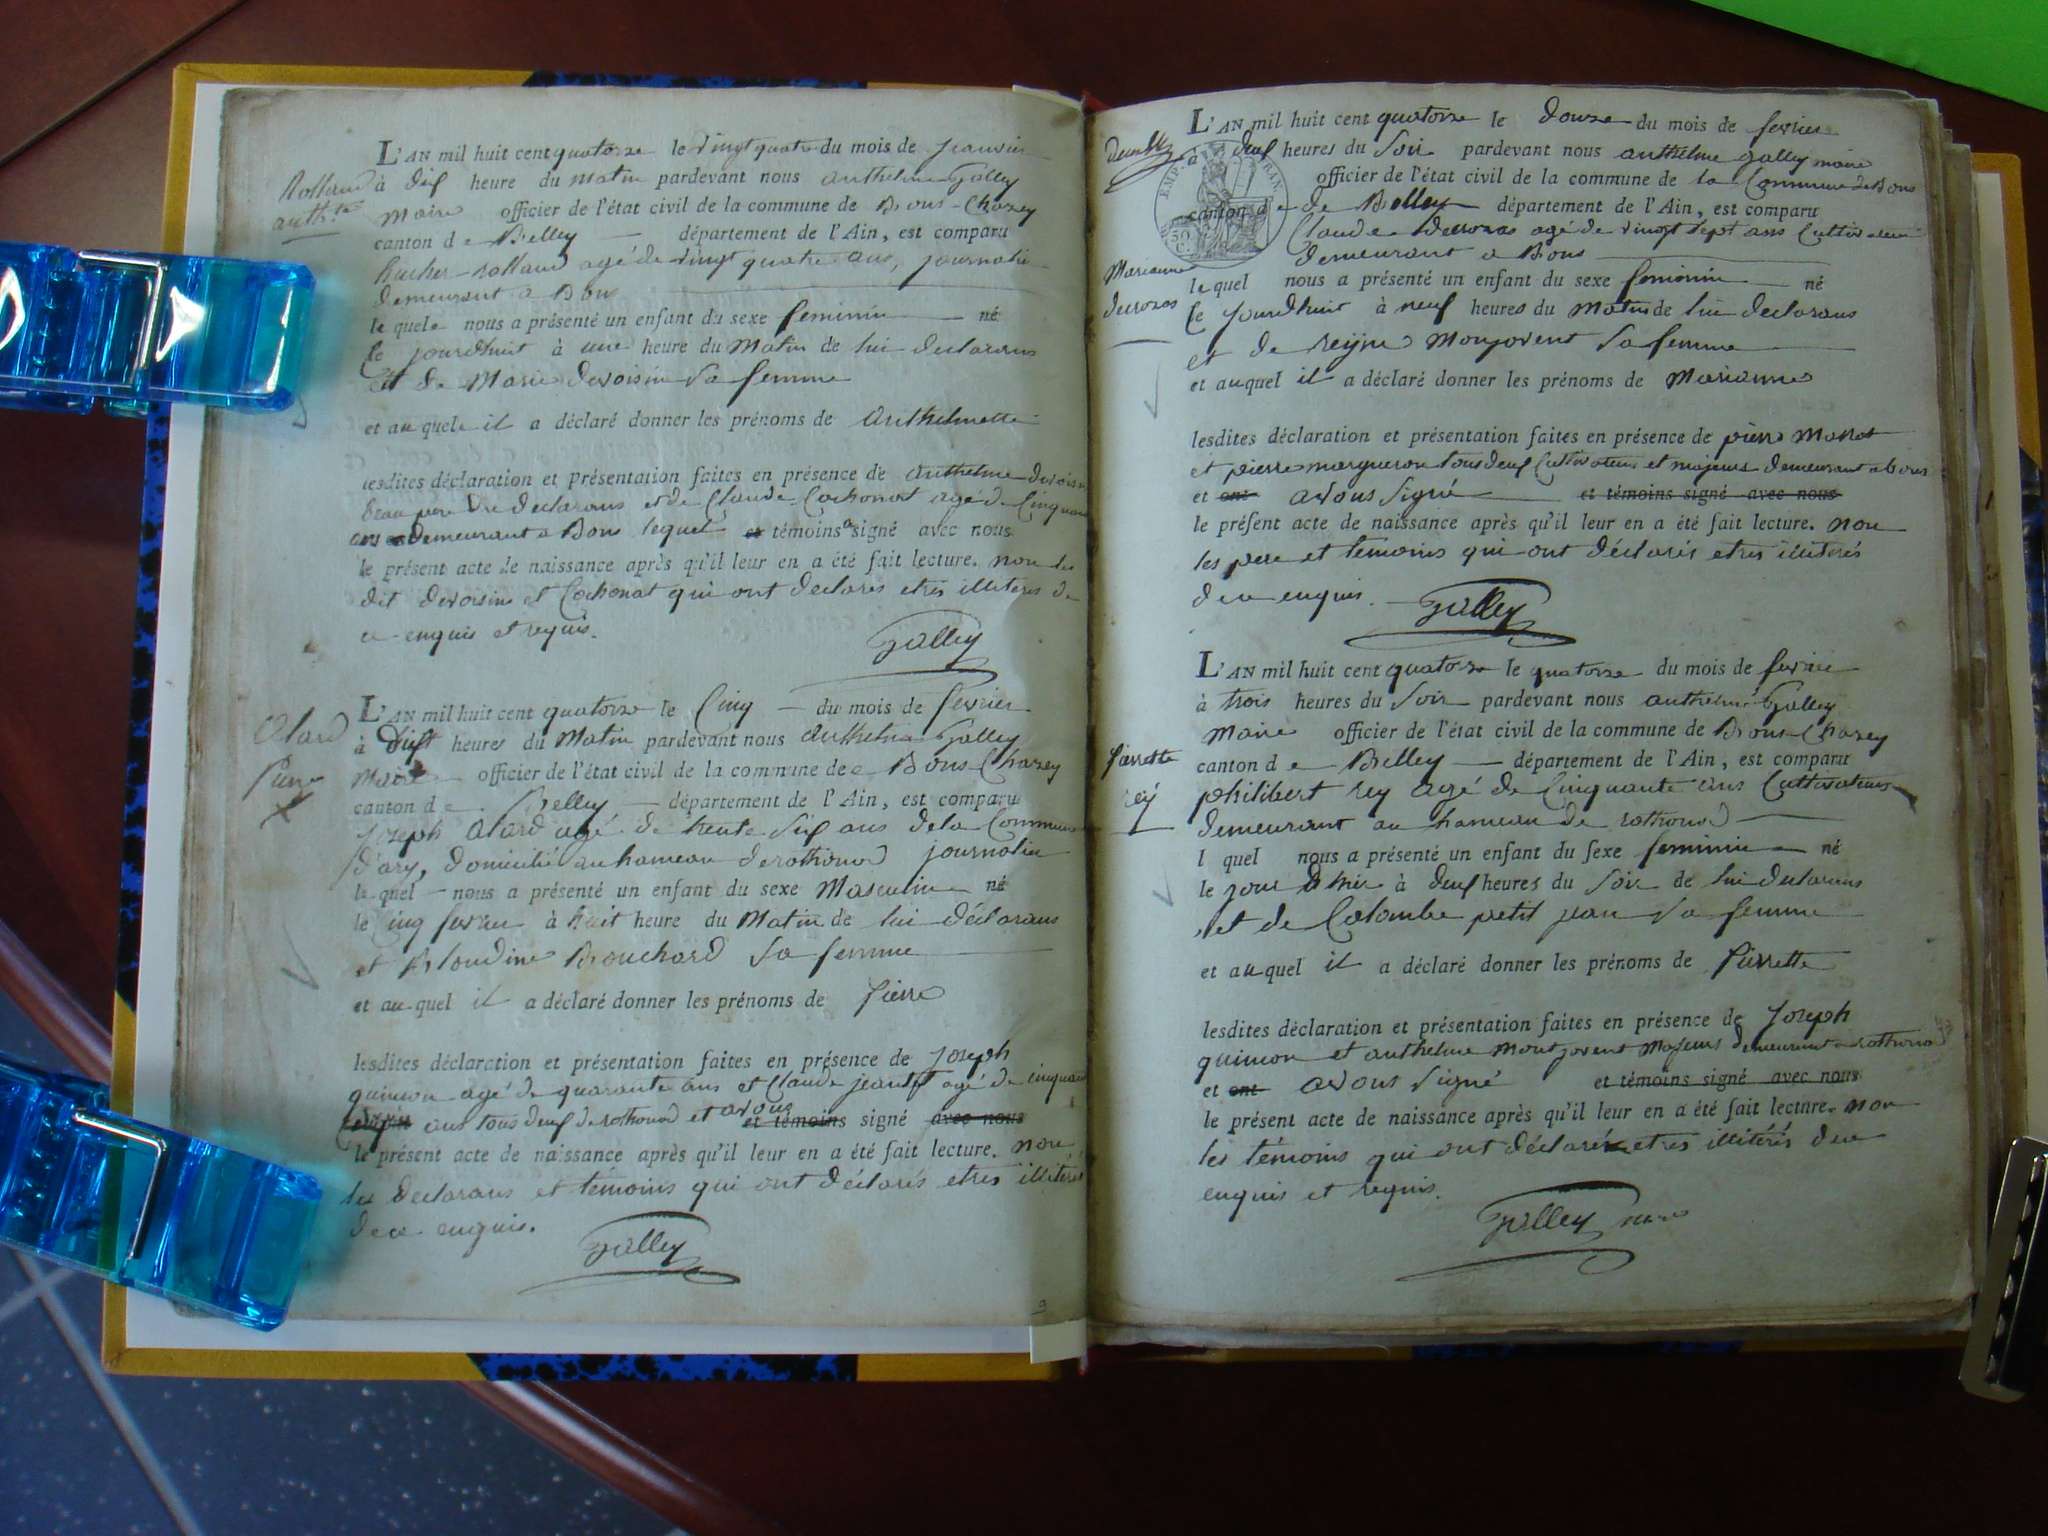 L'AN mil huit cent quatorze le vingt quatre du mois de janvier
Rolland
à dix heure du matin pardevant nous anthelme Galley
anth.te
maire officier de l'état civil de la commune de Bons-Chazey
canton de Belley département de l'Ain, est comparu
rolland agé de vingt quatre ans, journalie
demeurant a Bons
lequele nous a présenté un enfant du sexe feminin né
le jourdhuit à une heure du Matin de lui declarans
et de Marie devoisin sa femme
et au quele il a déclaré donner les prénoms de anthelmette
lesdites déclaration et présentation faites en présence de anthelme devoisin
beau pere du declarans et de Claude Cochonat agé de Cinquante
ans demeurant a Bons lequel et témoins signé avec nous
le présent acte de naissance après qu'il leur en a été fait lecture. non les
dit devoisin et Cochonat qui ont declarés etres illiteres de
ce enquis et requis.
Galley
L'AN mil huit cent quatorze le Cinq du mois de fevrier
alard
à heures du Matin pardevant nous anthelme Galley
Pierre
Maire officier de l'état civil de la commune de Bons Chazey
canton de Belley département de l'Ain, est comparu
Joseph alard agé de trente six ans dela Commune
d'ary, domicilié au hameau de rothonod journalier
le quel nous a présenté un enfant du sexe Masculin né
le Cinq fevrier à huit heure du Matin de lui déclarans
et Blondine Brouchard sa femme
et au quel il a déclaré donner les prénoms de Pierre
lesdites déclaration et présentation faites en présence de Joseph
quinson agé de quarante ans et Claude jeantet agé de cinquante
ans tous deux de rothonod et avons et témoins signé avec nous
le présent acte de naissance après qu'il leur en a été fait lecture. non
les declarans et témoins qui ont déclarés etres illitérés
de ce enquis.
Galley
9
L'AN mil huit cent quatorze le douze du mois de fevrier
à deux heures du Soir pardevant nous anthelme galley maire
officier de l'état civil de la commune de la Commune de Bons
EMP. FRAN.
canton de de Belley département de l'Ain, est comparu
50 C.
Claude derozas agé de vingt sept ans Cultivateur
demeurant a Bons
Marianne
le quel nous a présenté un enfant du sexe feminin né
derozas
le jourdhuit à neuf heures du Matin de lui declarans
et de reyne Monjovent sa femme
et auquel il a déclaré donner les prénoms de Marianne
lesdites déclaration et présentation faites en présence de pierre
et pierre margueron tous deux Cultivateurs et majeurs demeurant a bons
et ont avons signé et témoins signé avec nous
le présent acte de naissance après qu'il leur en a été fait lecture. non
les pere et temoins qui ont déclarés etres illiterés
de ce enquis.
Galley
L'AN mil huit cent quatorze le quatorze du mois de fevrier
à trois heures du Soir pardevant nous anthelme Galley
Maire officier de l'état civil de la commune de Bons Chazey
Pierrette
canton de Belley département de l'Ain, est comparu
rey
philibert rey agé de Cinquante ans Cultivateur
demeurant au hameau de rothonod
l quel nous a présenté un enfant du sexe feminin né
le jour d'hier à deux heures du Soir de lui declarans
et de Colombe petit jean sa femme
et au quel il a déclaré donner les prénoms de Pierrette
lesdites déclaration et présentation faites en présence de Joseph
quinson et anthelme Montjovent Majeurs demeurant a rothonod
et ont avons signé et témoins signé avec nous
le présent acte de naissance après qu'il leur en a été fait lecture. non
les témoins qui ont déclarés etres illitérés de ce
enquis et requis.
Galley maire